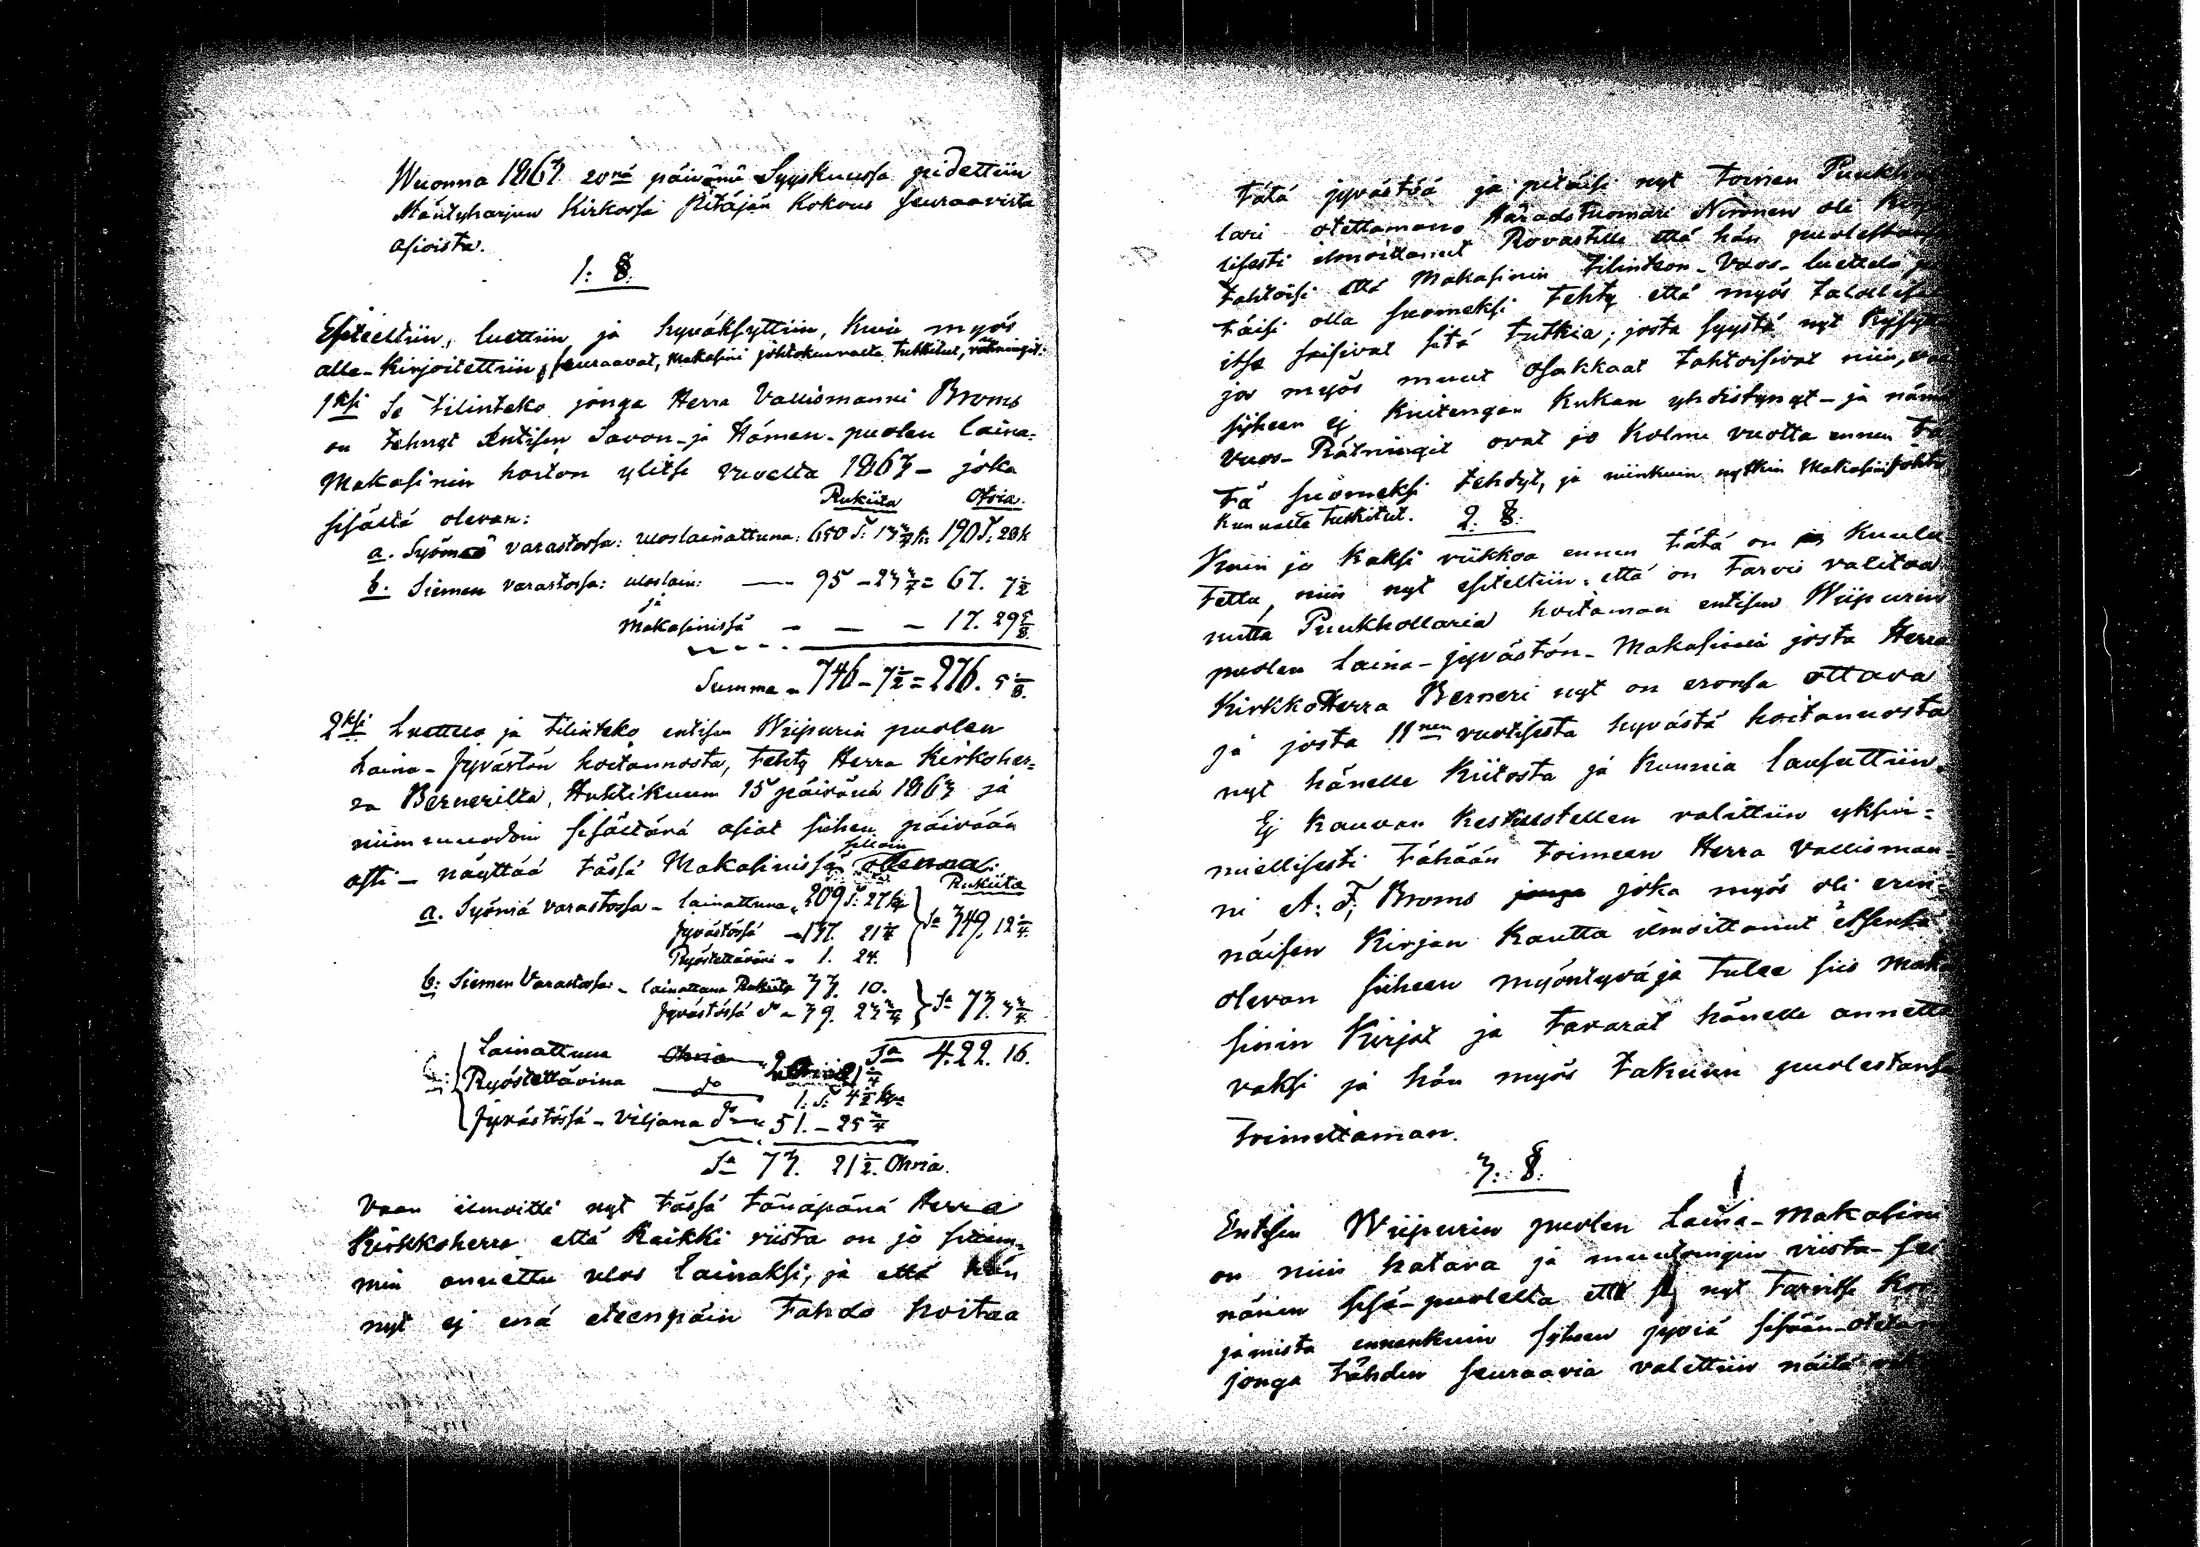 Wuonna 1867 20nä päivänä Syyskuussa pidettiin
Mäntyharjun Kirkossa Pitäjän Kokous seuraavista
asioista.
1: §.
Esiteltiin, luettiin ja hyväksyttiin, kuin myös
alle-kirjoitettiin seuraavat, Makasini johtokunnalta tutkitut, räkningit:
1ksi Se tilinteko jonga Herra Vallesmanni Broms
on tehnyt Entisen Savon- ja Hämen-puolen laina-
Makasinin hoiton ylitse vuodelta 1867 - joka
Rukiita Otria.
sisältä olevan:
a. Syömä varastossa: uloslainattuna: 650 T: 13 3/4 k: 190 T: 29 k
b. Siemen varastossa: uloslain: — 95 - 23 3/4 = 67. 7 1/2
ja
Makasinissa - - - 17. 29 5/8
Summa = 746 - 7 1/2 = 276. 5 1/8.
2ksi Luettua ja tilinteko entisen Wiipurin puolen
Laina-Jyvästön hoitannosta, tehty Herra Kirkoher=
ra Bernerilta, Huhtikuun 15 päivänä 1867 ja
niin muodoin sisältävä asiat siihen päivään
asti - näyttää tässä Makasinissa silloin olleena:
Rukiita
a. Syömä varastossa - lainattuna 209 T: 27 kp
Jyvästössä - 137. 21 3/4 Sa 349. 12 3/4.
Ryöstettävänä - 1. 24.
b: Siemen Varastossa - lainattuna Rukiita 33. 10.
Jyvästössä do - 39. 23 3/4 Sa 73. 3 3/4.
Lainattuna Sa 422. 16.
Ryöstettävina do 1: T: 4 1/2 kpa
Jyvästössä - Viljana do 51. - 25 3/4
Sa 73. 21 1/2. Ohria.
Vaan ilmoitti nyt tässä tänäpänä Herra
Kirkkoherra että Kaikki riista on jo
min annettu ulos Lainaksi, ja että hän
nyt ej enä eteenpäin tahdo hoitaa
tätä jyvästöä ja pitäisi nyt toinen
lari otettamana Häradstuomari Nironen oli
lisesti ilmoittanut Rovastille että hän
tahtoisi että Makasinin tilinteon-Vuos-luettelo
täisi olla suomeksi tehty että myös
itse saisivat sitä tutkia; josta syystä nyt
jos myös muut Osakkaat tahtoisivat niin,
sijheen ej kuitengan kukan yhdistynyt - ja
Vuos-Rätningit ovat jo kolme vuotta ennen
tä suomeksi tehdyt, ja niinkuin nytkin
kunnalta tutkitut. 2. §.
Kuin jo kaksi viikkoa ennen tätä on kuulu-
tettu, niin nyt esiteltiin: että on tarvis valitaa
uutta Puukhollaria hoitaman entisen Wiipurin
puolen Laina-jyvästön-Makasinia josta Herra
KirkkoHerra Berneri nyt on eronsa ottava
ja josta 11nen vuotisesta hyvästä hoitannosta
nyt hänelle Kiitosta ja kunnia lausuttiin.
Ej kauvan keskustellen valittiin yksimi=
miellisesti tähään toimeen Herra Vallesman-
ni A: F; Broms jonga joka myös oli erin-
näisen Kirjan kautta ilmoittanut itsensä
olevan siiheen myöntyvä ja tulee siis
sinin Kirjat ja tavarat hänelle annetta
vaksi ja hän myös takuun puolestansa
toimittaman.
3: §.
Entisen Wiipurin puolen Laina-Makasini
on niin hatara ja muutongin
näinen sisä-puolelta että se nyt tarvitse
jamista ennenkuin sijheen jyviä
jonga tähden seuraavia valittiin näitä